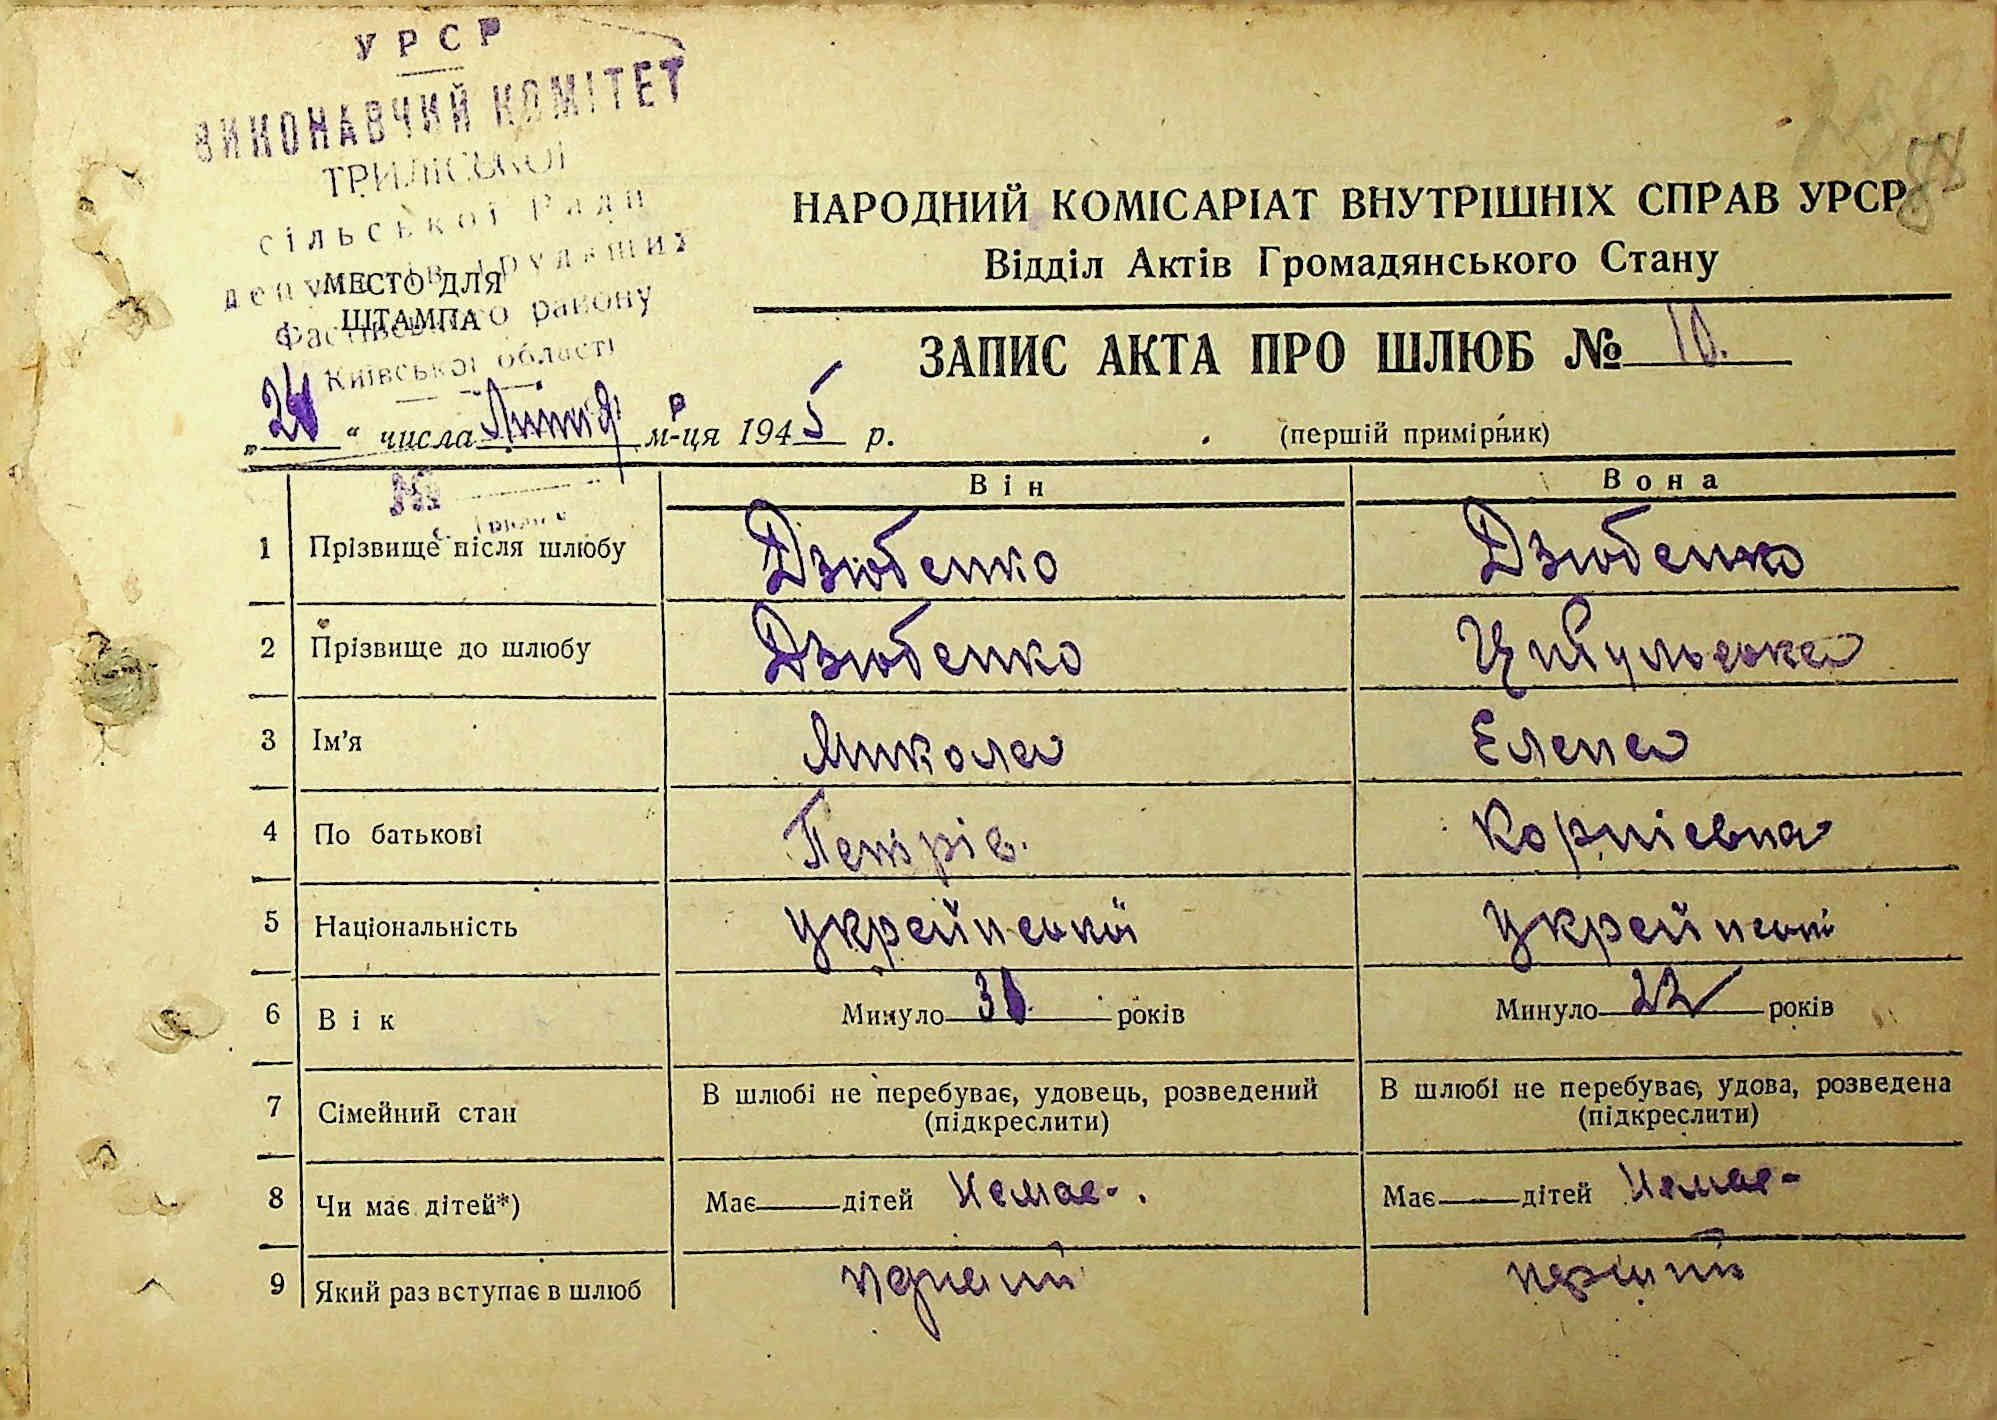 УРСР
ВИКОНАВЧИЙ КОМІТЕТ
ТРИЛІСЬКОЇ
сільської Ради
депутатів трудящих
Фастівського району
Київської області
МЕСТО ДЛЯ
ШТАМПА
88
НАРОДНИЙ КОМІСАРІАТ ВНУТРІШНІХ СПРАВ УРСР
Відділ Актів Громадянського Стану
ЗАПИС АКТА ПРО ШЛЮБ № 10.
„ “ числа м-ця 1945 р.
(першій примірник)
№
Він Вона
1 Прізвище після шлюбу Дзюбенко Дзюбенко
2 Прізвище до шлюбу Дзюбенко Цибульська
3 Ім'я Микола Елена
4 По батькові Петрів. Корнієвна
5 Національність Украйнської Украйнської
6 Вік Минуло років Минуло 22 років
7 Сімейний стан В шлюбі не перебуває, удовець, розведений (підкреслити) В шлюбі не перебуває, удова, розведена (підкреслити)
8 Чи має дітей*) Має дітей Немає. Має дітей Немає
9 Який раз вступає в шлюб перший